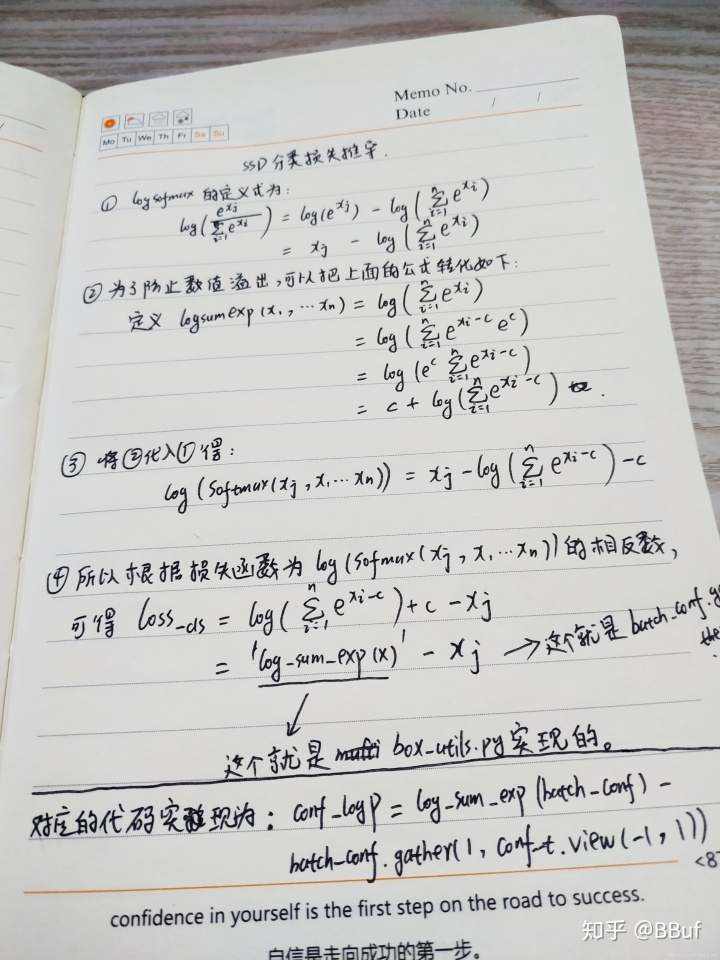 Memo No.
Date / /
Mo Tu We Th Fr Sa Su
SSD 分类损失推导.
① logsofmax 的定义式为:
log(e^{xj} / ∑_{i=1} e^{xi}) = log(e^{xj}) - log(∑_{i=1}^{n} e^{xi})
= xj - log(∑_{i=1}^{n} e^{xi})
② 为了防止数值溢出,可以把上面的公式转化如下:
定义 logsumexp(x₁, ⋯ xn) = log(∑_{i=1}^{n} e^{xi})
= log(∑_{i=1}^{n} e^{xi-c} e^c)
= log(e^c ∑_{i=1}^{n} e^{xi-c})
= c + log(∑_{i=1}^{n} e^{xi-c}) .
③ 将②代入①得:
log(softmax(xj, x₁ ⋯ xn)) = xj - log(∑_{i=1}^{n} e^{xi-c}) - c
④ 所以根据损失函数为 log(sofmax(xj, x₁ ⋯ xn)) 的相反数,
可得 Loss_cls = log(∑_{i=1}^{n} e^{xi-c}) + c - xj
= 'log_sum_exp(x)' - xj → 这个就是 batch_conf.g
这个就是 box_utils.py 实现的。
对应的代码实现为: conf_logP = log_sum_exp(batch_conf) -
batch_conf.gather(1, conf_t.view(-1, 1))
<8
confidence in yourself is the first step on the road to success.
自信是走向成功的第一步。
知乎 @BBuf